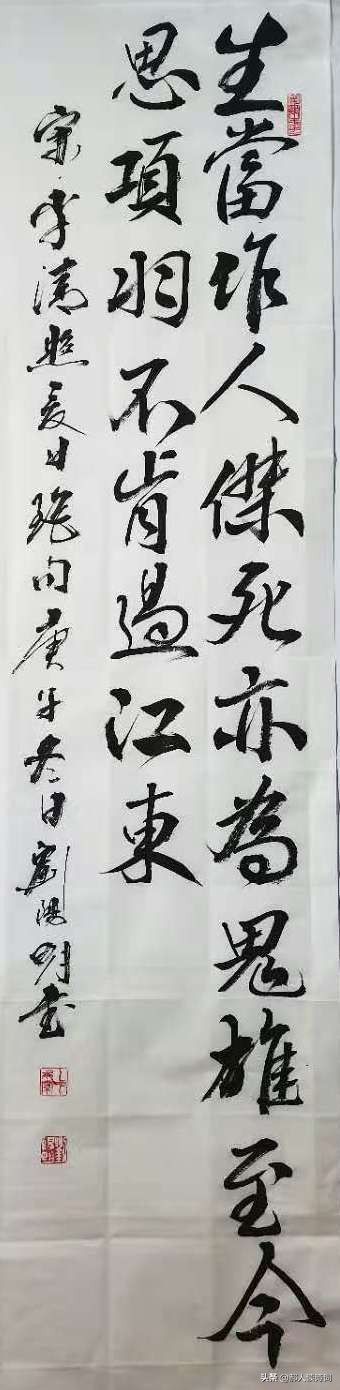 生當作人傑死亦為鬼雄至今
思項羽不肯過江東
宋李清照夏日絕句庚子冬日劉明書
头条